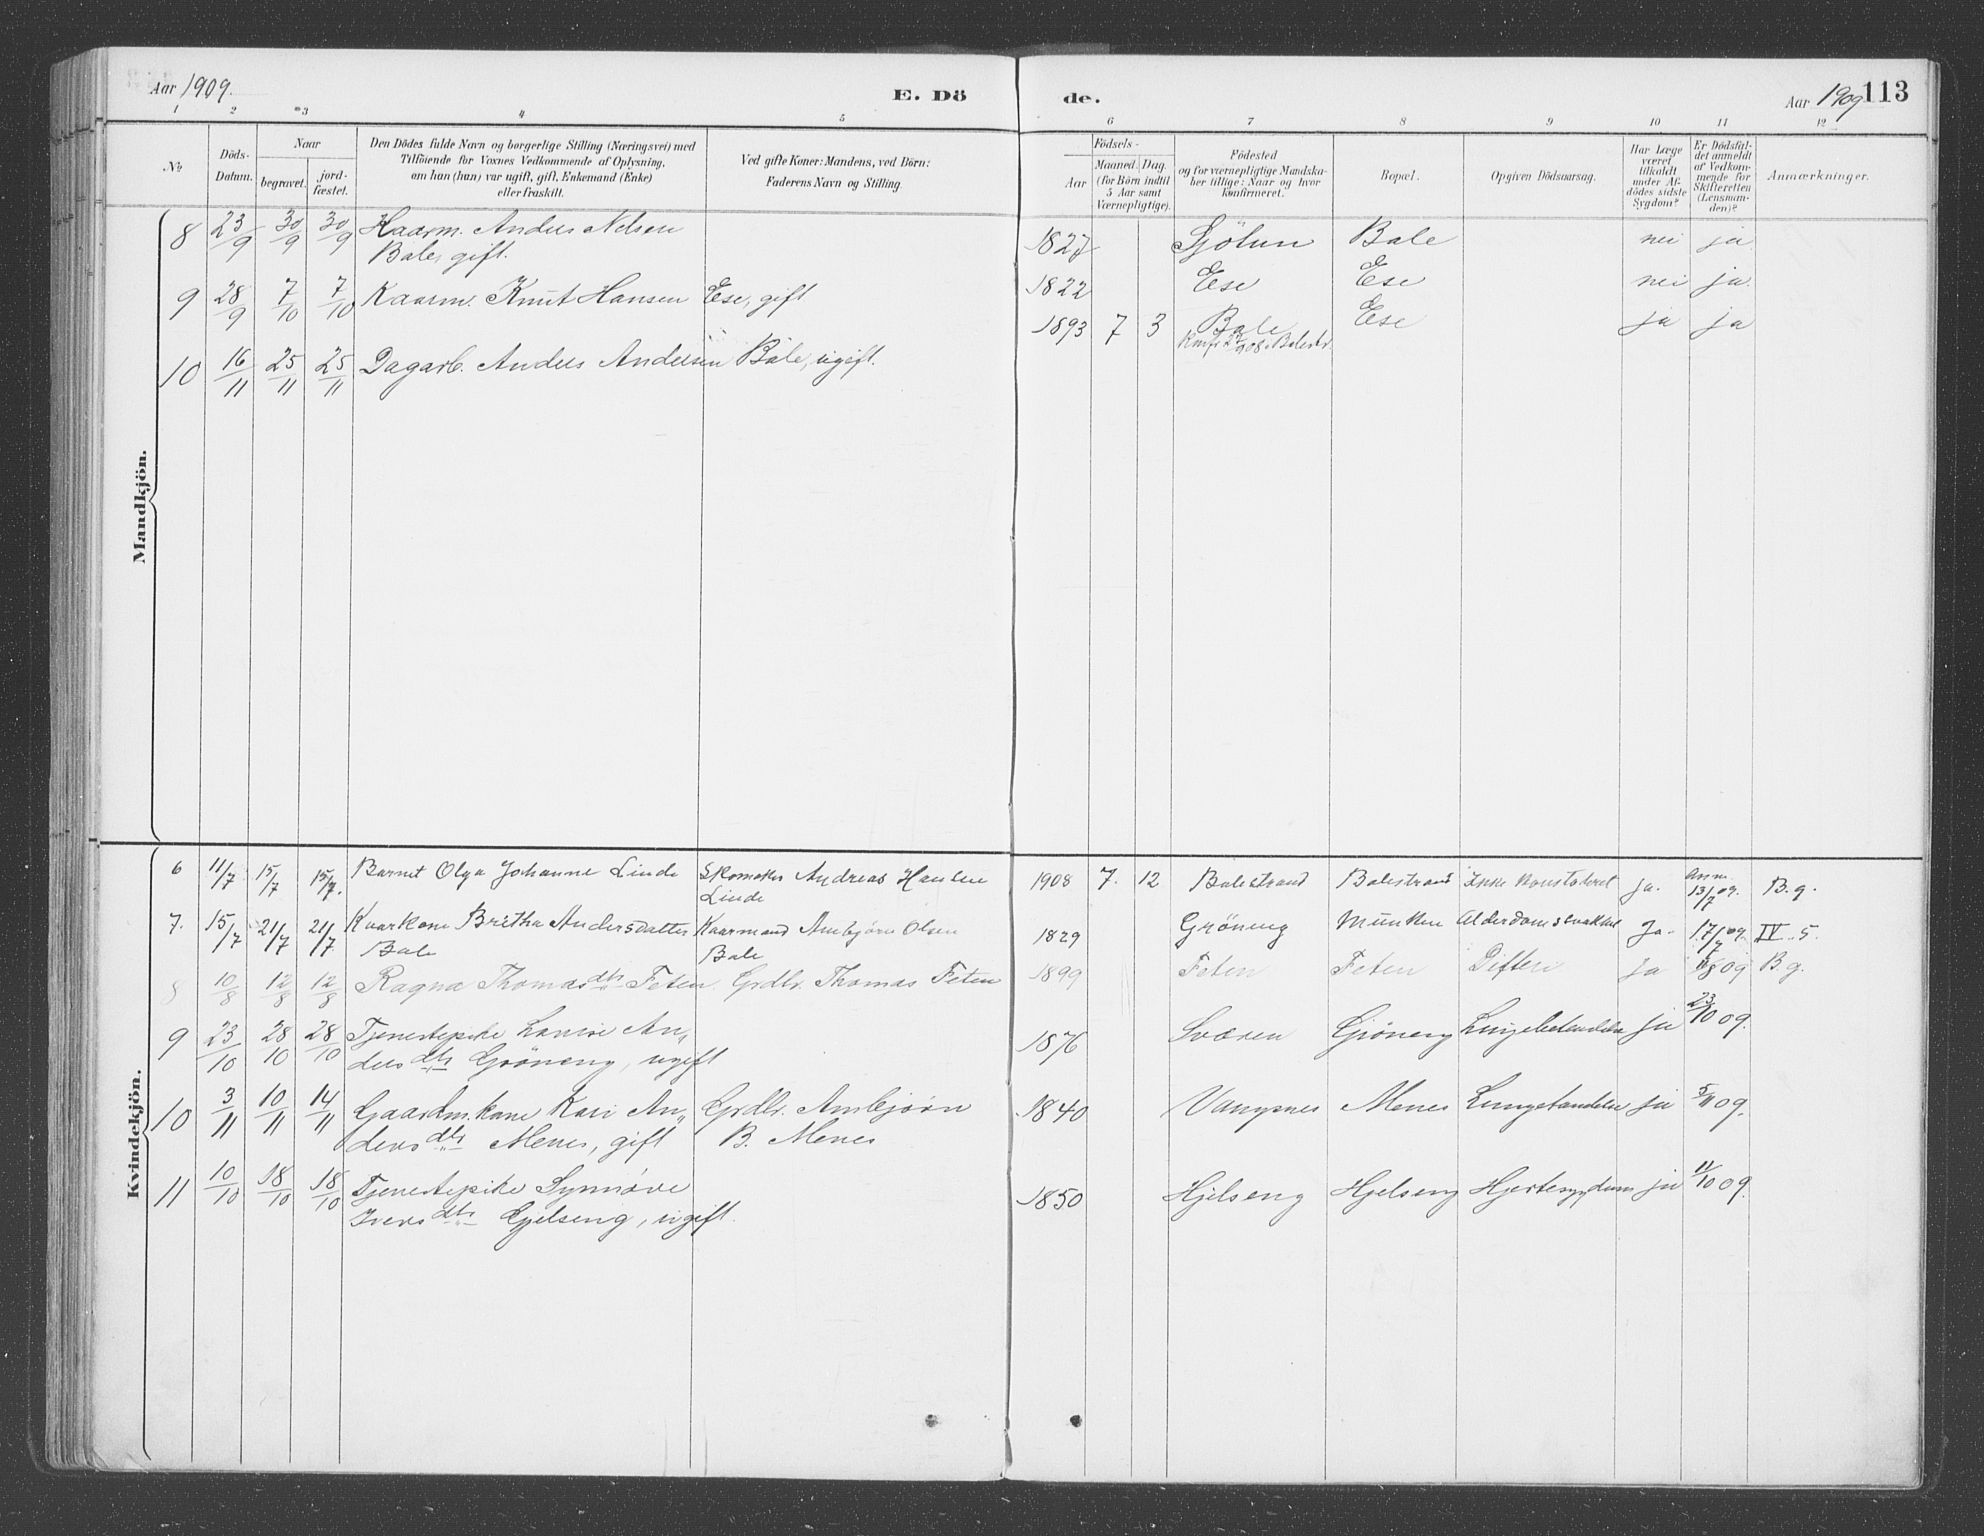 Aar 1909.
E. Dö
de.
Aar 1909 113
1 2 *3 4 5 6 7 8 9 10 11 12
No
Döds-Datum.
Naar
begravet.
jord-fæstet.
Den Dödes fulde Navn og borgerlige Stilling (Næringsvei) med
Tilföiende for Voxnes Vedkommende af Oplysning,
om han (hun) var ugift, gift, Enkemand (Enke)
eller fraskilt.
Ved gifte Koner: Mandens, ved Börn:
Faderens Navn og Stilling.
Födsels-
Aar
Maaned. Dag.
(for Börn indtil
5 Aar samt
Værnepligtige).
Födested
og for værnepligtige Mandska-
ber tillige: Naar og hvor
konfirmeret.
Bopæl.
Opgiven Dödsaarsag.
Har Læge
været
tilkaldt
under Af-
dödes sidste
Sygdom?
Er Dödsfal-
det anmeldt
af Vedkom-
mende for
Skifteretten
(Lensman-
den)?
Anmærkninger.
Mandkjön.
8 23/9 30/9 30/9 Kaarm. Anders Nelsen 1827 Sjötun Bale nei ja
Bale, gift.
9 28/9 7/10 7/10 Kaarm. Knut Hansen Ese, gift 1822 Ese Ese nei ja.
10 16/11 25/11 25/11 Dagarb. Anders Andersen Bale, ugift. 1893 7 3 Bale Ese ja ja
Konf. 908 i Balestr.
Kvindekjön.
6 11/7 15/7 15/7. Barnet Olga Johanne Linde Skomaker Andreas Hansen 1908 7. 12 Balestrand Balestrand Ikke konstateret ja. Anm. 13/7 09. B.g.
Linde
7. 15/7 21/7 21/7 Kaarkone Britha Andersdatter Kaarmand Ambjørn Olsen 1829 Gröneng Munken Alderdomssvakhet Ja. 17/7 09. IV. 5.
Bale Bale
8 10/8 12/8 12/8 Ragna Thomasdtr Feten Grdbr. Thomas Feten 1899 Feten Feten Difteri ja 11/8 09 B.g.
9 23/10 28/10 28/10 Tjenestepike Lovise An- 1876 Sværen Grøneng ja 23/10 09.
dersdtr Grøneng, ugift
10 3/11 10/11 14/11 Gaardm.kone Kari An- Grdbr. Ambjørn 1840 Vangsnes Menes ja 5/11 09.
dersdtr Menes, gift B. Menes
11 10/10 18/10 18/10 Tjenestepike Synnøve 1850 Hjelseng Hjelseng Hjertesygdom ja 11/10 09.
Iversdtr Gjelseng, ugift.